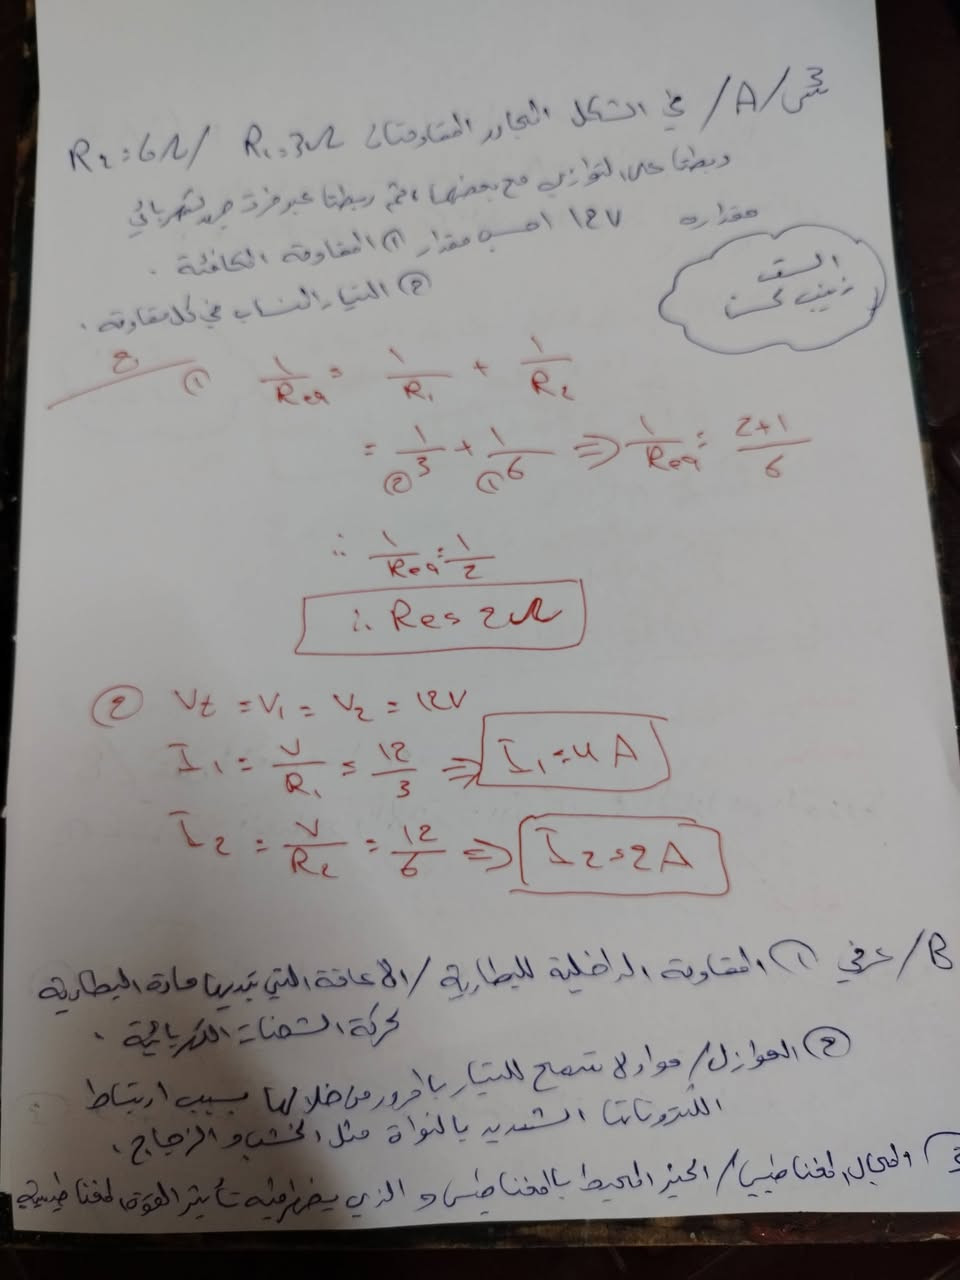 س3/A/ في الشكل المجاور المقاومتان R1=3Ω / R2=6Ω
ربطتا على التوازي مع بعضها، ثم ربطتا عبر فرق جهد كهربائي
مقداره 12V احسب مقدار ① المقاومة المكافئة .
② التيار المنساب في كل مقاومة .
الست
زينب محسن
ج ① 1/Req = 1/R1 + 1/R2
= 1/3 + 1/6 ⇒ 1/Req = 2+1/6
② ①
∴ 1/Req = 1/2
∴ Req = 2Ω
② Vt = V1 = V2 = 12V
I1 = V/R1 = 12/3 ⇒ I1 = 4A
I2 = V/R2 = 12/6 ⇒ I2 = 2A
B/ عرفي ① المقاومة الداخلية للبطارية / الاعاقة التي تبديها مادة البطارية
لحركة الشحنات الكهربائية .
② العوازل / مواد لا تسمح للتيار بالمرور من خلالها بسبب ارتباط
الكتروناتها الشديد بالنواة مثل الخشب و الزجاج .
المجال المغناطيسي / الحيز المحيط بالمغناطيس و الذي يظهر فيه تأثير القوة المغناطيسية